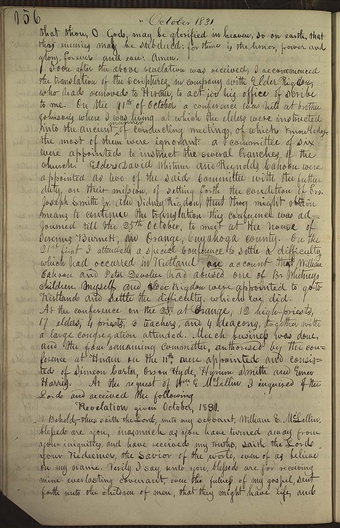 156
October 1831
that thou, O God, may be glorified in heaven, so on earth, that
thy enemies may be subdued; for thine is the honor, power and
glory, forever and ever. Amen.
Soon after the above revelation was received, I recommenced
the translation of the Scriptures, in company with Elder Rigdon,
who had removed to Hiram, to act in his office of Scribe
to me. On the 11th of October a conference was held at brother
Johnson's where I was living, at which the elders were instructed
into the ancient manner of conducting meetings, of which knowledge
the most of them were ignorant. A committee of six
were appointed to instruct the several branches of the
church. Elders David Whitmer and Reynolds Cahoon were
appointed as two of the said committee with the further
duty, on their mission, of setting forth the condition of Brs.
Joseph Smith jr. and Sidney Rigdon, that they might obtain
means to continue the translation. This conference was ad-
journed till the 25th October, to meet at the House of
Burnett, in Orange, Cuyahoga county. On the
21st I attended a special conference to settle a difficulty
which had occurred in Kirtland on account that William
Cahoon and Peter had abused one of Br. Whitney's
children. Myself and Elder Rigdon were appointed to go to
Kirtland and settle the difficulty, which we did.
At the conference on the 25th at Orange, 12 high priests,
17 elders, 4 priests, 3 teachers, and 4 deacons, together with
a large congregation attended. Much business was done
and the four remaining committee, authorised by the con-
ference at Hiram on the 11th were appointed and consist-
ed of Simeon Carter, Orson Hyde, Hyrum Smith and Emer
Harris. At the request of Wm. E. McLellin I inquired of the
Lord and received the following
Revelation given October, 1831.
1 Behold, thus saith the Lord, unto my servant William E. McLellin,
blessed are you, inasmuch as you have turned away from
your iniquities, and have received my truths, saith the Lord
your Redeemer, the Savior of the world, even of as believe
on my name. Verily I say unto you, blessed are for receiving
mine everlasting covenant, even the fulness of my gospel, sent
forth unto the children of men, that they might have life, and